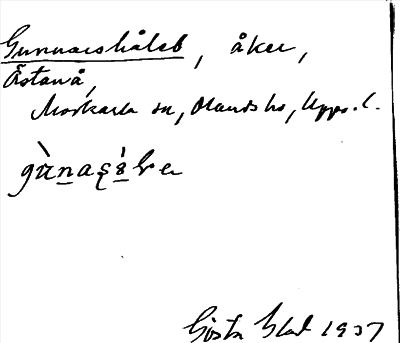 Gunnarshåleb, åker,
Åstanå,
Morkarla sn, Olands hd, Upps. l.
Gösta Blad 1937